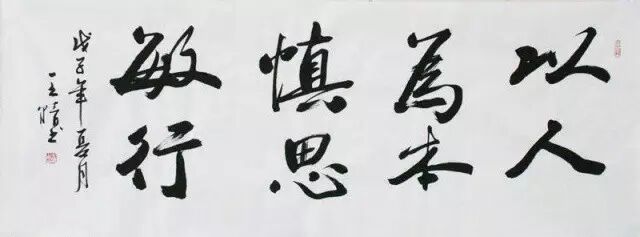 以人
為本
慎思
敏行
戊子年夏月